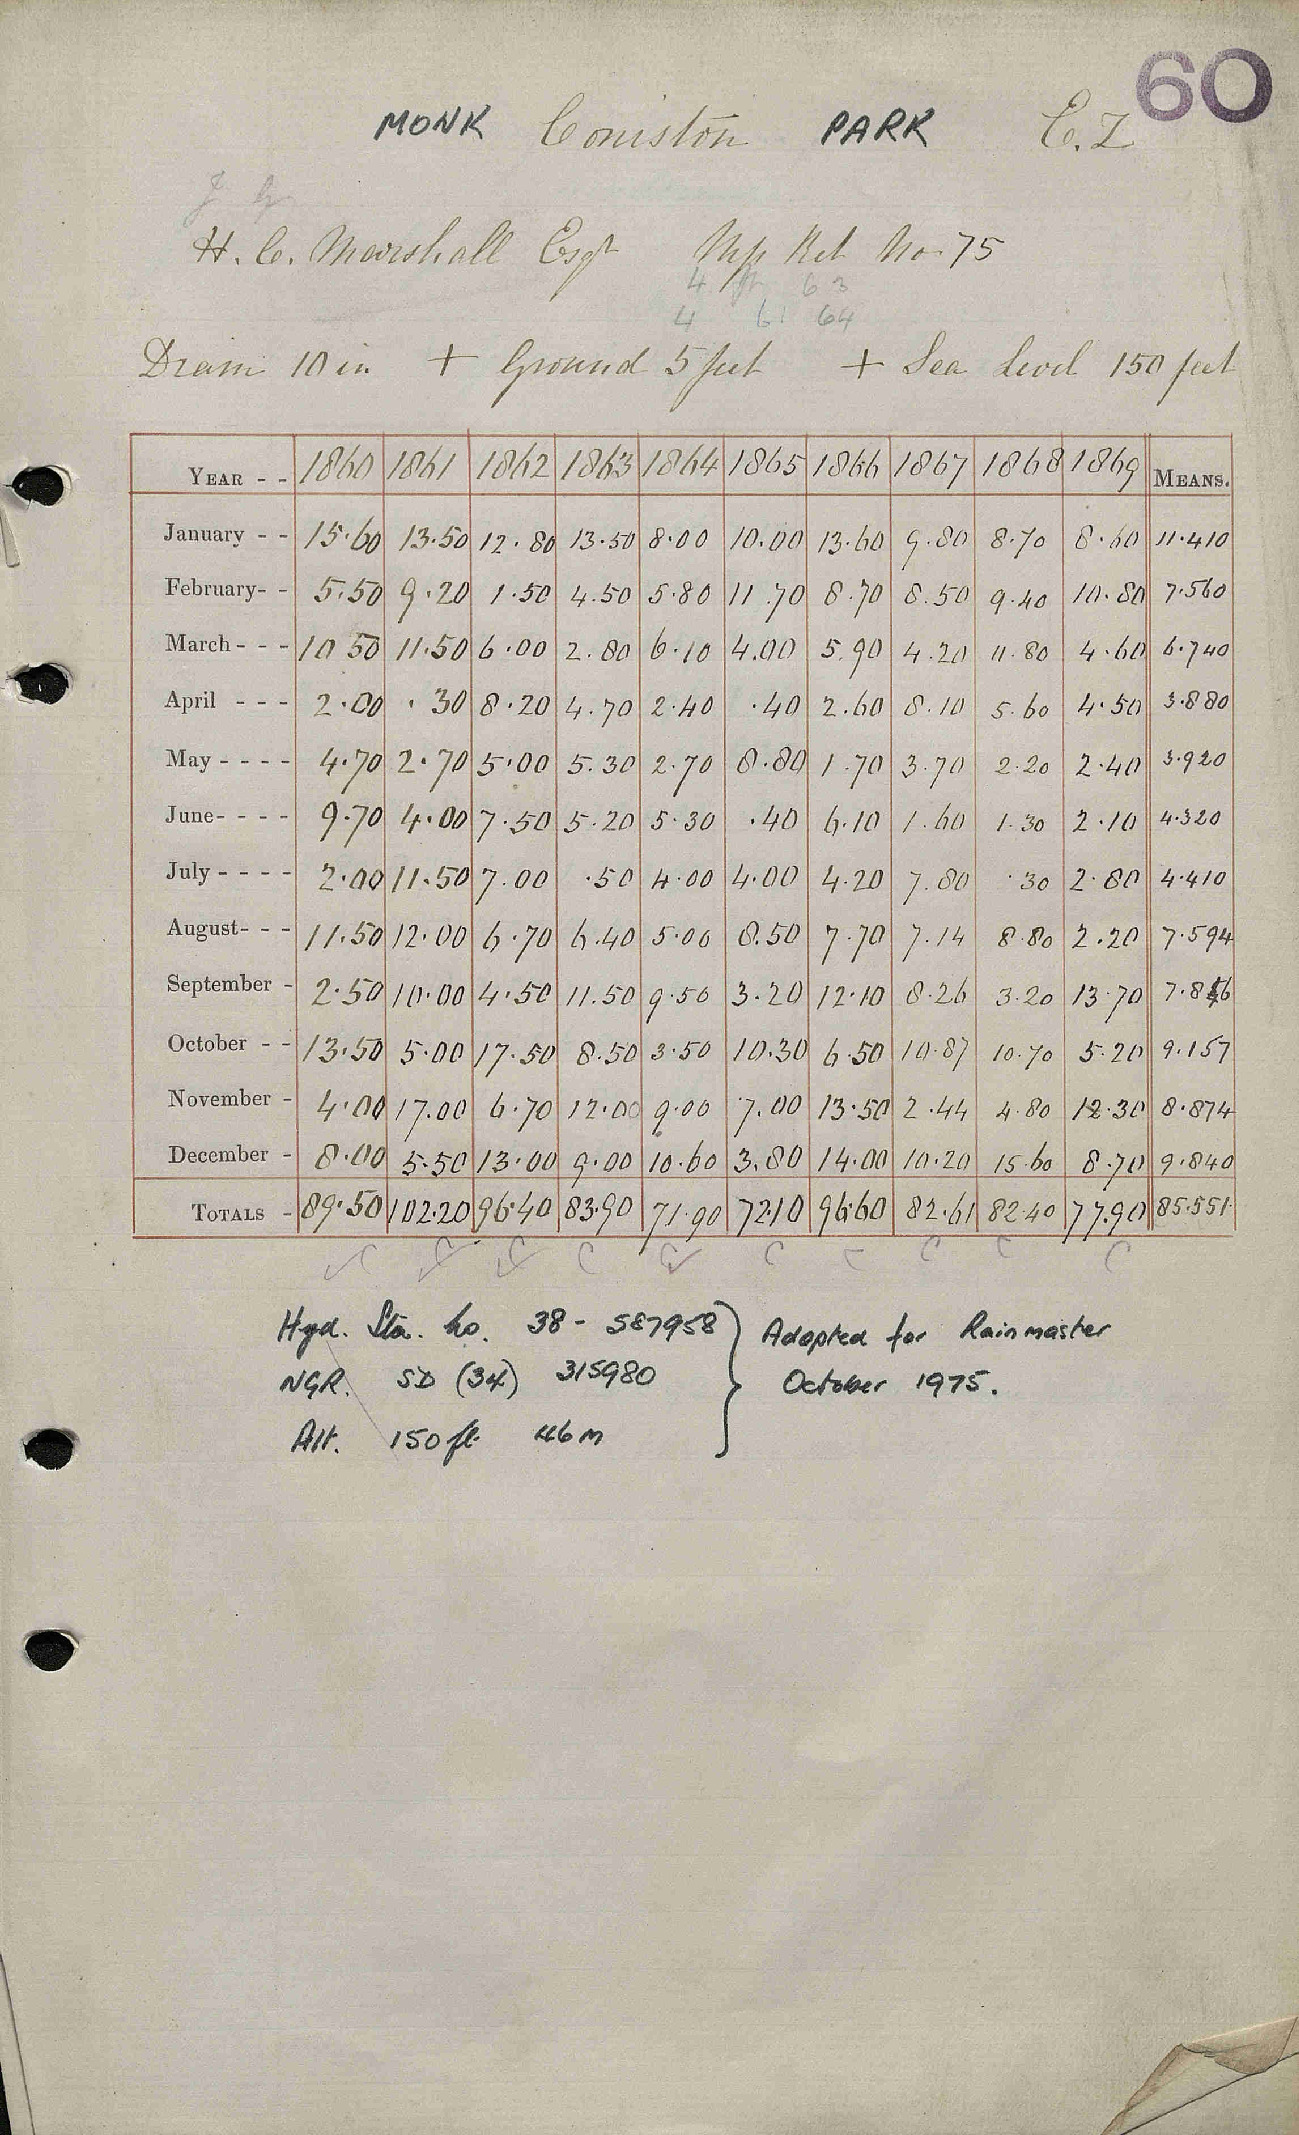 60
MONK Coniston PARK E.I
J G
H. C. Marshall Esqr Mp Ret No 75
4 ft 63
4 61 64
Diam 10 in + Ground 5 feet + Sea Level 150 feet
YEAR - - 1860 1861 1862 1863 1864 1865 1866 1867 1868 1869 MEANS.
January - - 15.60 13.50 12.80 13.50 8.00 10.00 13.60 9.80 8.70 8.60 11.410
February- - 5.50 9.20 1.50 4.50 5.80 11.70 8.70 8.50 9.40 10.80 7.560
March - - - 10 50 11.50 6.00 2.80 6.10 4.00 5.90 4.20 11.80 4.60 6.740
April - - - 2.00 .30 8.20 4.70 2.40 .40 2.60 8.10 5.60 4.50 3.880
May - - - - 4.70 2.70 5.00 5.30 2.70 8.80 1.70 3.70 2.20 2.40 3.920
June- - - - 9.70 4.00 7.50 5.20 5.30 .40 6.10 1.60 1.30 2.10 4.320
July - - - - 2.00 11.50 7.00 .50 4.00 4.00 4.20 7.80 .30 2.80 4.410
August- - - 11.50 12.00 6.70 6.40 5.00 8.50 7.70 7.14 8.80 2.20 7.594
September - 2.50 10.00 4.50 11.50 9.50 3.20 12.10 8.26 3.20 13.70 7.846
October - - 13.50 5.00 17.50 8.50 3.50 10.30 6.50 10.87 10.70 5.20 9.157
November - 4.00 17.00 6.70 12.00 9.00 7.00 13.50 2.44 4.80 12.30 8.874
December - 8.00 5.50 13.00 9.00 10.60 3.80 14.00 10.20 15.60 8.70 9.840
TOTALS - 89.50 102.20 96.40 83.90 71.90 72.10 96.60 82.61 82.40 77.90 85.551
C C C C C C C C C C
Hyd. Sta. No. 38 - 587958 } Adopted for Rainmaster
NGR. SD (34) 315980 October 1975.
Alt. 150 ft. 46 m